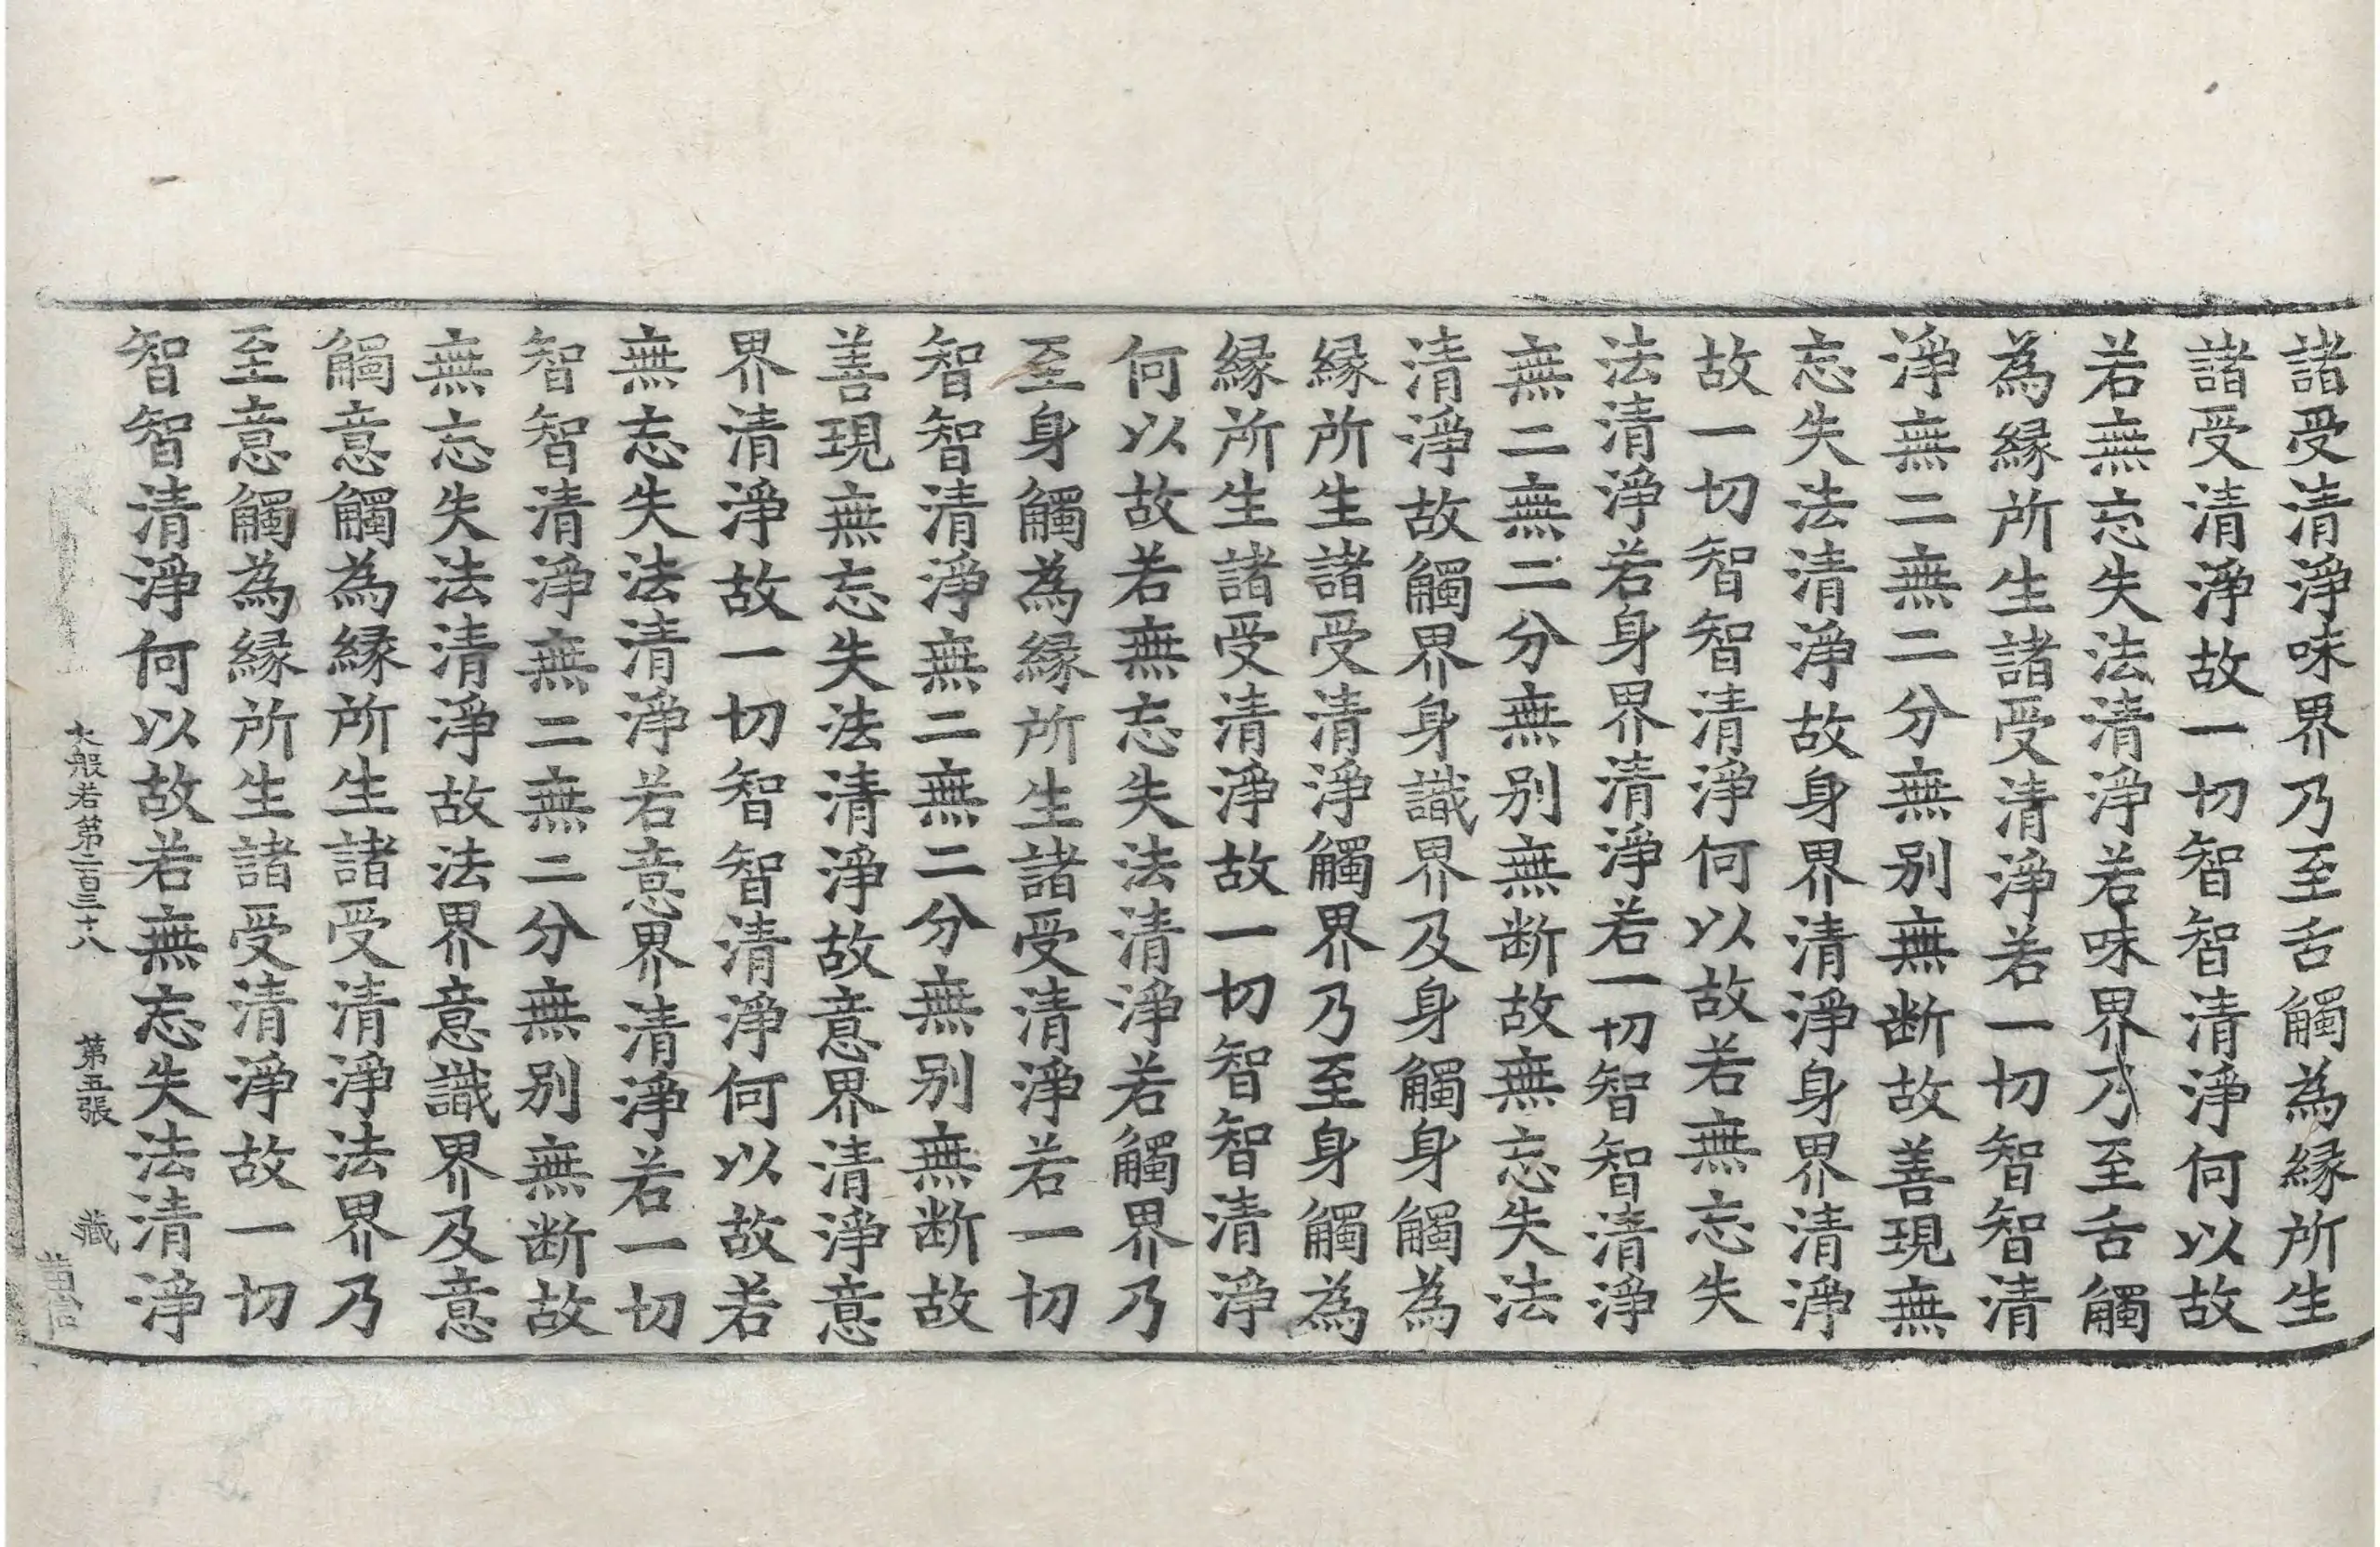 諸受清淨味界乃至舌觸為縁所生
諸受清淨故一切智智清淨何以故
若無忘失法清淨若味界乃至舌觸
為縁所生諸受清淨若一切智智清
淨無二無二分無别無断故善現無
忘失法清淨故身界清淨身界清淨
故一切智智清淨何以故若無忘失
法清淨若身界清淨若一切智智清淨
無二無二分無别無断故無忘失法
清淨故觸界身識界及身觸身觸為
縁所生諸受清淨觸界乃至身觸為
縁所生諸受清淨故一切智智清淨
何以故若無忘失法清淨若觸界乃
至身觸為縁所生諸受清淨若一切
智智清淨無二無二分無别無断故
善現無忘失法清淨故意界清淨意
界清淨故一切智智清淨何以故若
無忘失法清淨若意界清淨若一切
智智清淨無二無二分無别無断故
無忘失法清淨故法界意識界及意
觸意觸為縁所生諸受清淨法界乃
至意觸為縁所生諸受清淨故一切
智智清淨何以故若無忘失法清淨
大般若第二百三十八 第五張 藏